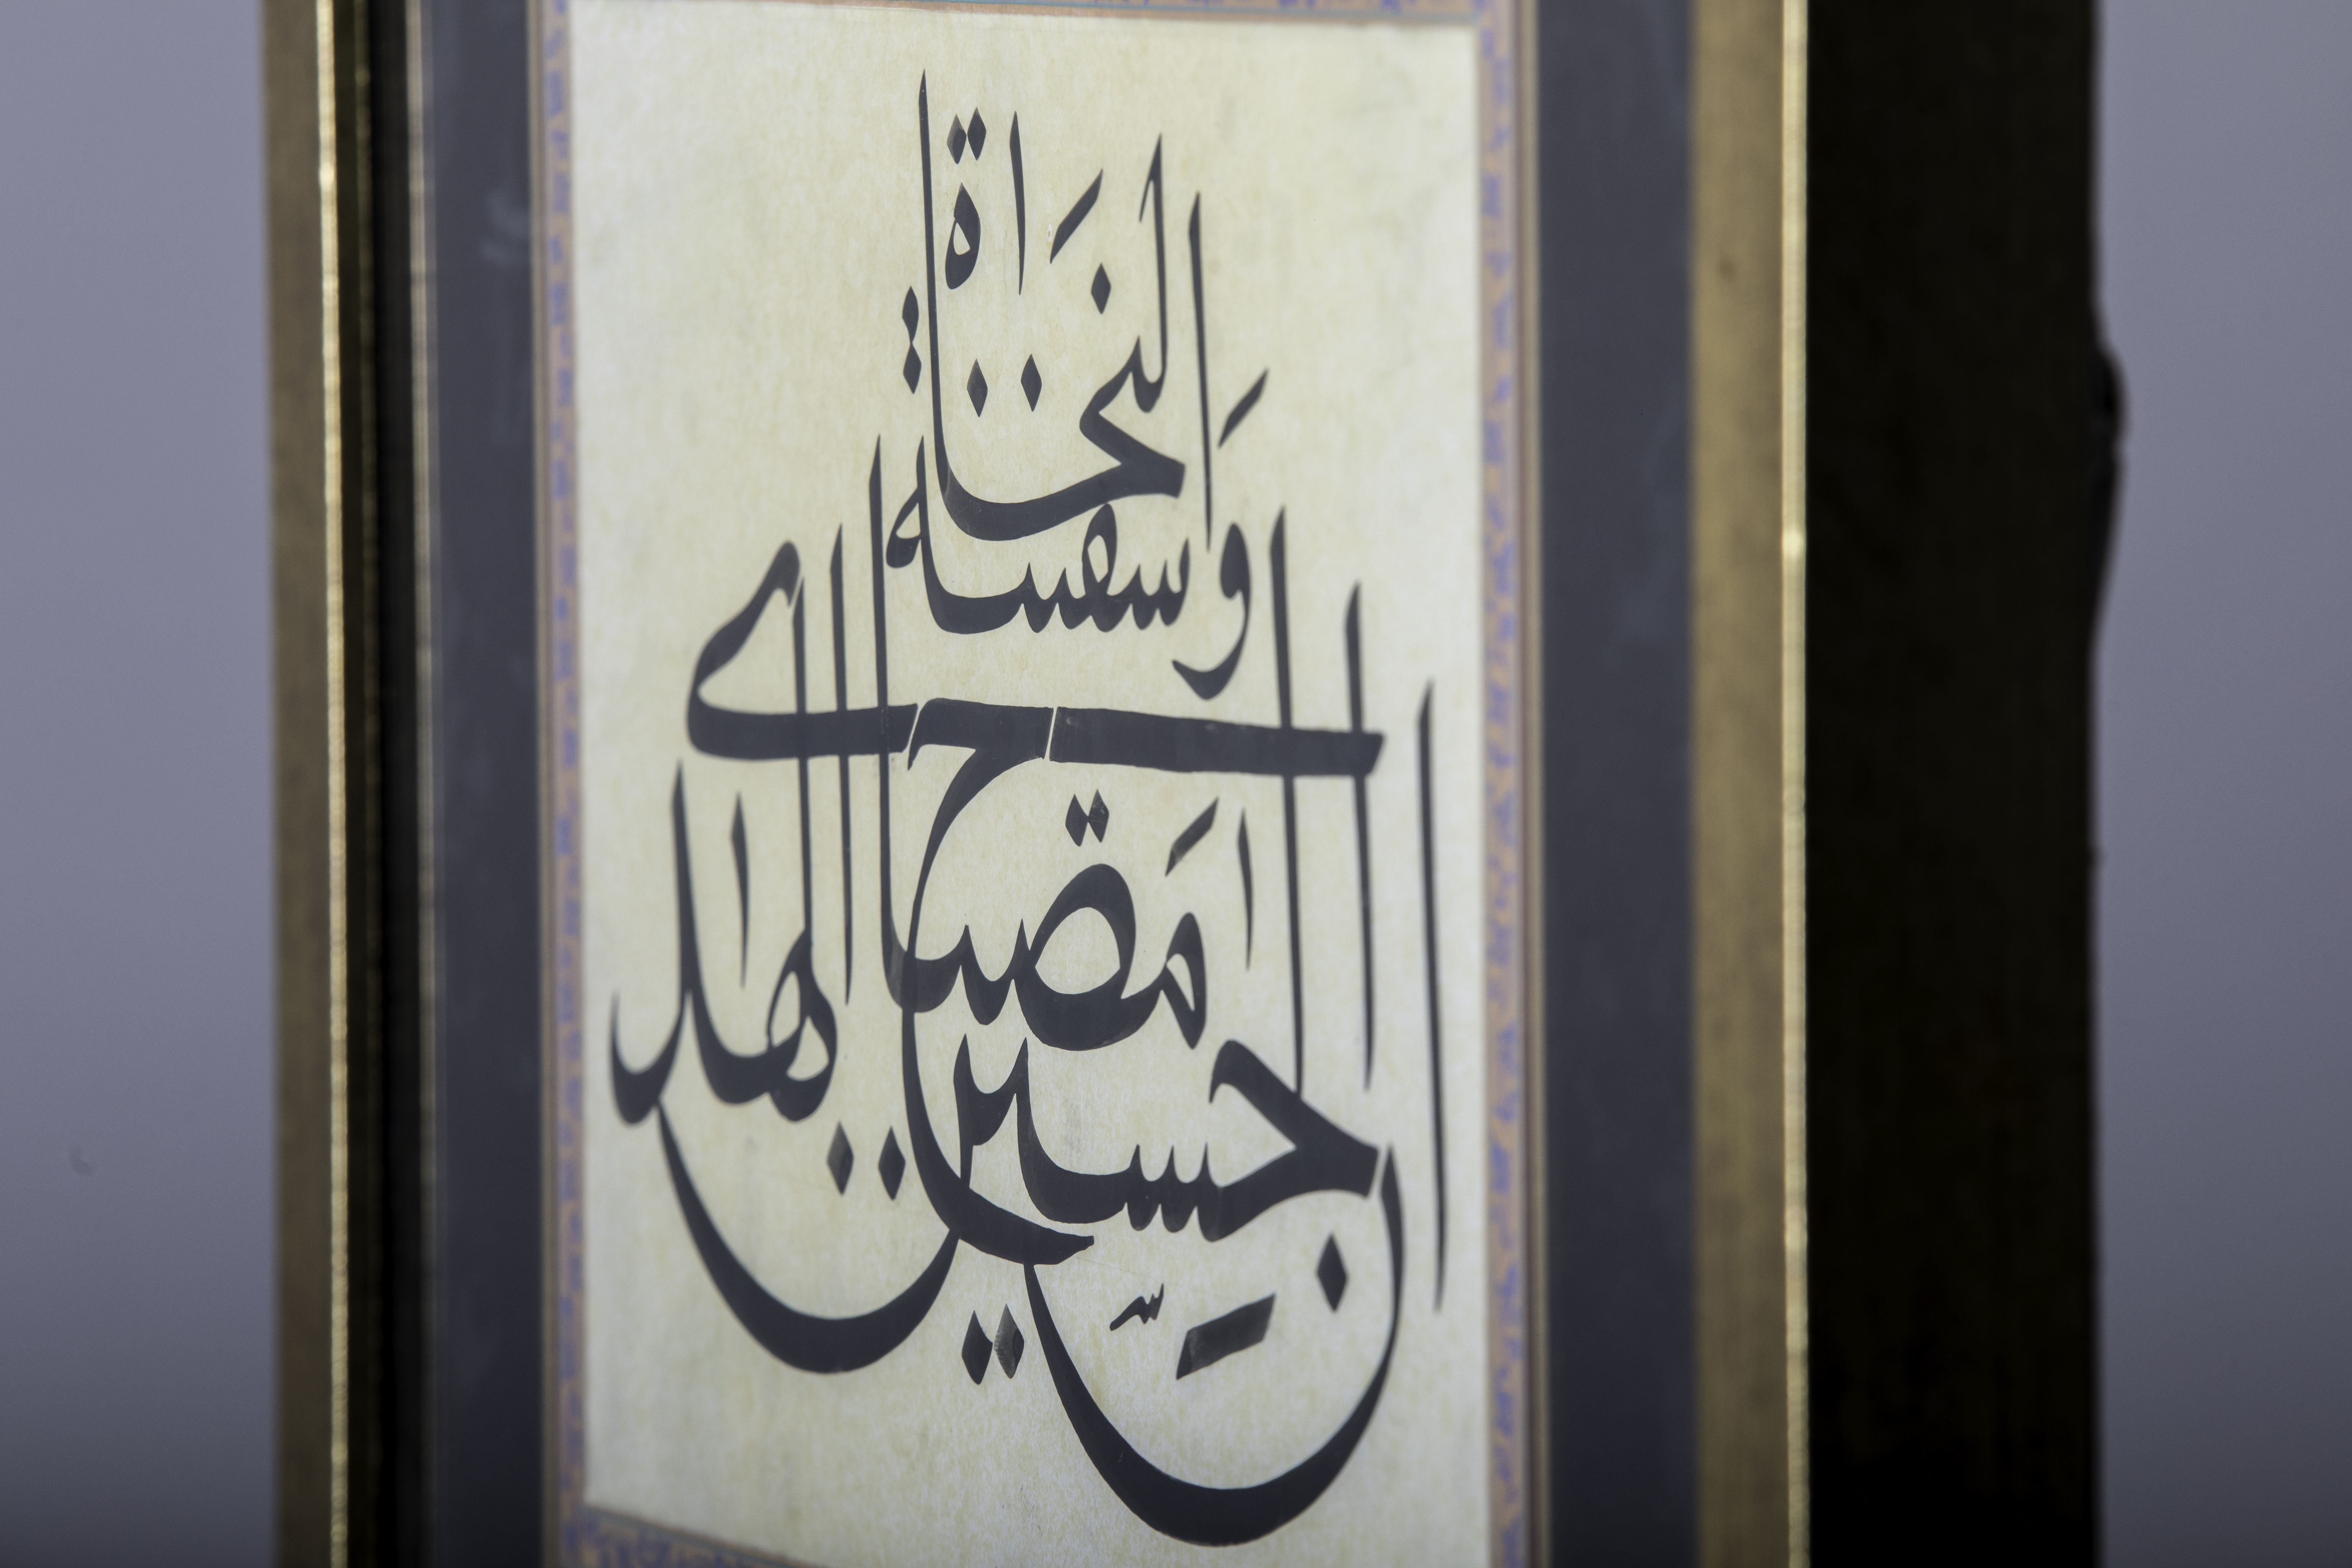 ان الحسین مصباح الهدی
و سفینة النجاة